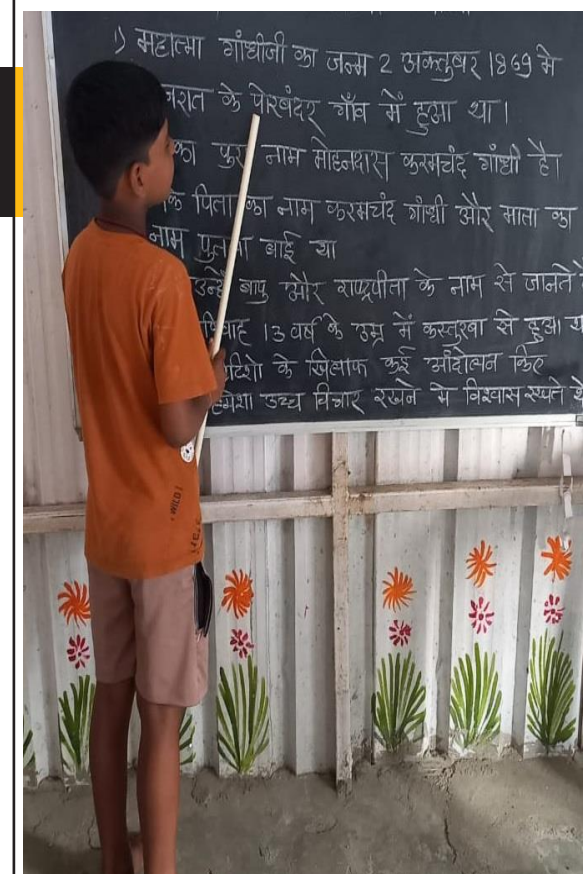 1) महात्मा गांधीजी का जन्म 2 अक्तुबर 1869 मे
जरात के पोरबंदर गाँव में हुआ था।
का पुरा नाम मोहनदास करमचंद गांधी है।
के पिता का नाम करमचंद गांधी और माता का
नाम पुतला बाई था
उन्हें बापु और राष्ट्रपीता के नाम से जानते
विवाह 13 वर्ष के उम्र में कस्तुरबा से हुआ
के खिलाफ कई आंदोलन किए
हमेशा उच्च विचार रखने मे विश्वास रखते थे
WILD